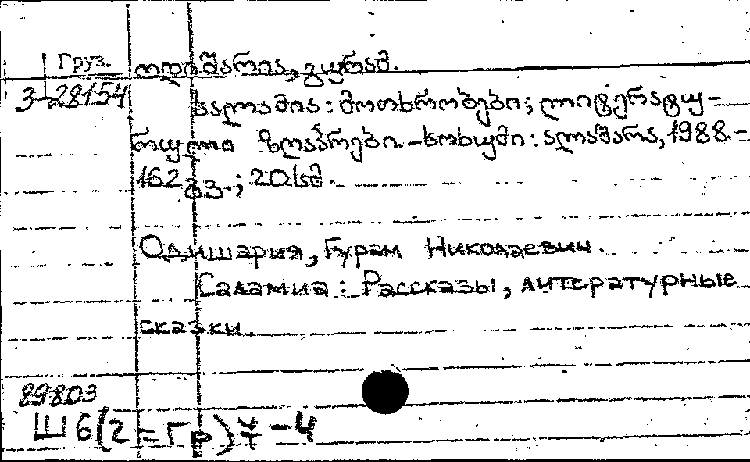 Груз.
ოდიშარია, გურამ.
3-28154
სალამია: მოთხრობები; ლიტერატუ-
რული ზღაპრები. - სოხუმი: ალაშარა, 1988. -
162 გვ.; 20 სმ.
Одишария, Гурам Николаевич.
Саламиа: Рассказы, литературные
сказки.
89803
Ш6(2=Гр)7-4